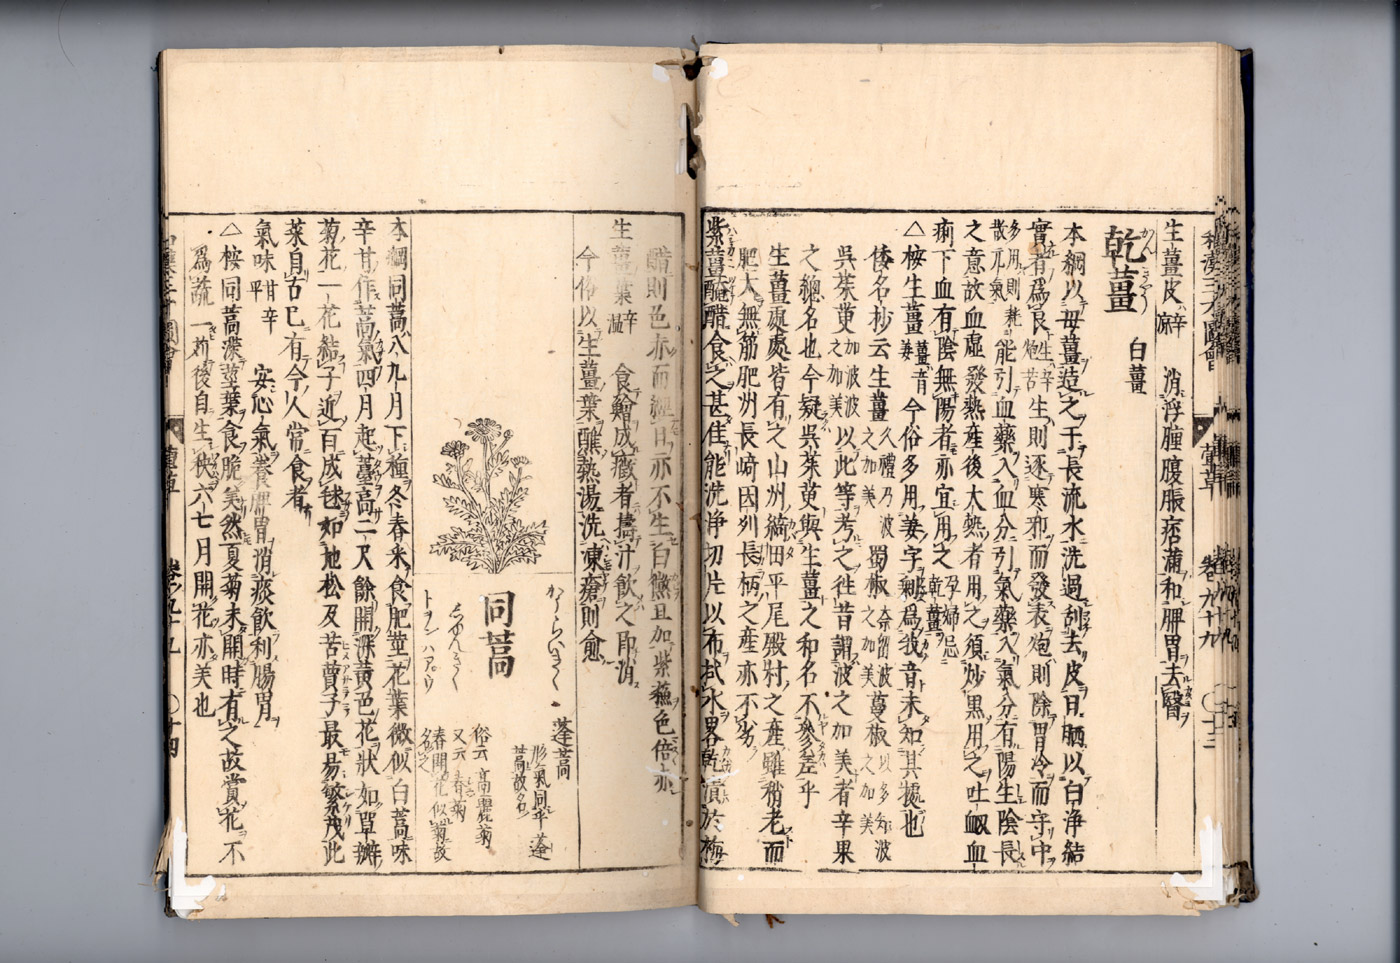 生薑皮 辛涼 消浮腫腹脹痞滿和脾胃去醫
乾薑 かんきやう 白薑
本綱以母薑造之于長流水洗過刮去皮日晒以白淨結
實者爲良 生辛炮苦 生則逐寒邪而發表炮則除胃冷而守中
多用則耗散元氣 能引血藥入血分引氣藥入氣分有陽生陰長
之意故血虛發熱產後大熱者用之須炒黒用之吐衂血
痢下血有陰無陽者亦宜用之 孕婦忌乾薑
△桉生薑 薑音姜 今俗多用姜字 爲我音未知其據也
倭名抄云生薑 久禮乃波之加美 蜀椒 奈留波之加美 蔓椒 以多知波之加美
呉茱萸 加波波之加美 以此等考之往昔謂波之加美者辛果
之總名也今疑呉茱萸與生薑之和名不參差乎
生薑處處皆有之山州綺田平尾殿村之產雖稍老而
肥大無筋肥州長崎因州長柄之產亦不劣
紫薑醃醋食之甚佳能洗淨切片以布拭水畧乾漬於梅
醋則色亦而經日亦不生白黴且加紫蘇色倍赤
生薑葉 辛溫 食鱠成癥者擣汁飲之即消
今俗以生薑葉醮熱湯洗凍瘡則愈
同蒿
蓬蒿
形氣同乎蓬蒿故名
俗云高麗菊
又云春菊
春開花似菊故名之
しゆんきく
本綱同蒿八九月下種冬春采食肥莖花葉微似白蒿味
辛甘作蒿氣四月起薹高二尺餘開深黃色花狀如單瓣
菊花一花結子近百成毬如地松及苦蕒子最易繁茂此
菜自古巳有今人常食者
氣味 甘辛平 安心氣養脾胃消痰飲利腸胃
△桉同蒿濼莖葉食脆美然夏菊未開時有之故賞花不
爲蔬一苅後自生秧六七月開花亦美也
卷之九十九